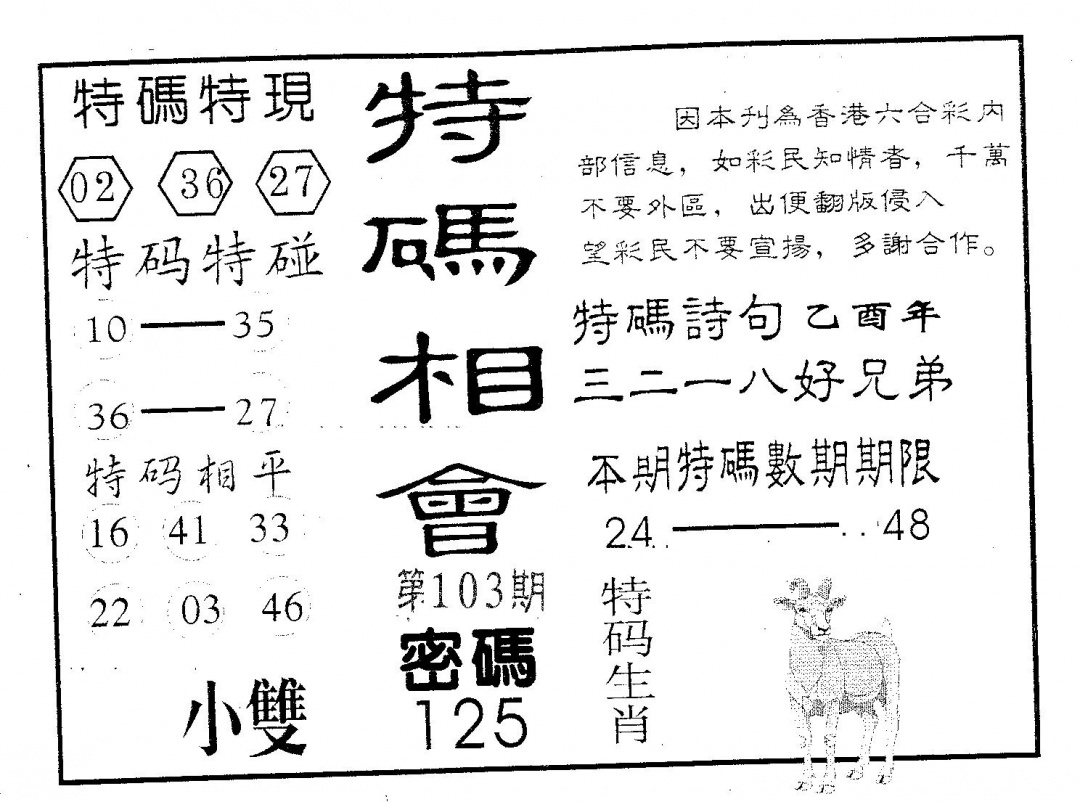 特碼特現
02 36 27
特码特碰
10——35
36——27
特码相平
16 41 33
22 03 46
小雙
特碼相會
第103期
密碼
125
因本刊為香港六合彩内
部信息，如彩民知情者，千萬
不要外區，出便翻版侵入
望彩民不要宣揚，多謝合作。
特碼詩句 乙酉年
三二一八好兄弟
本期特碼數期期限
24——48
特码生肖